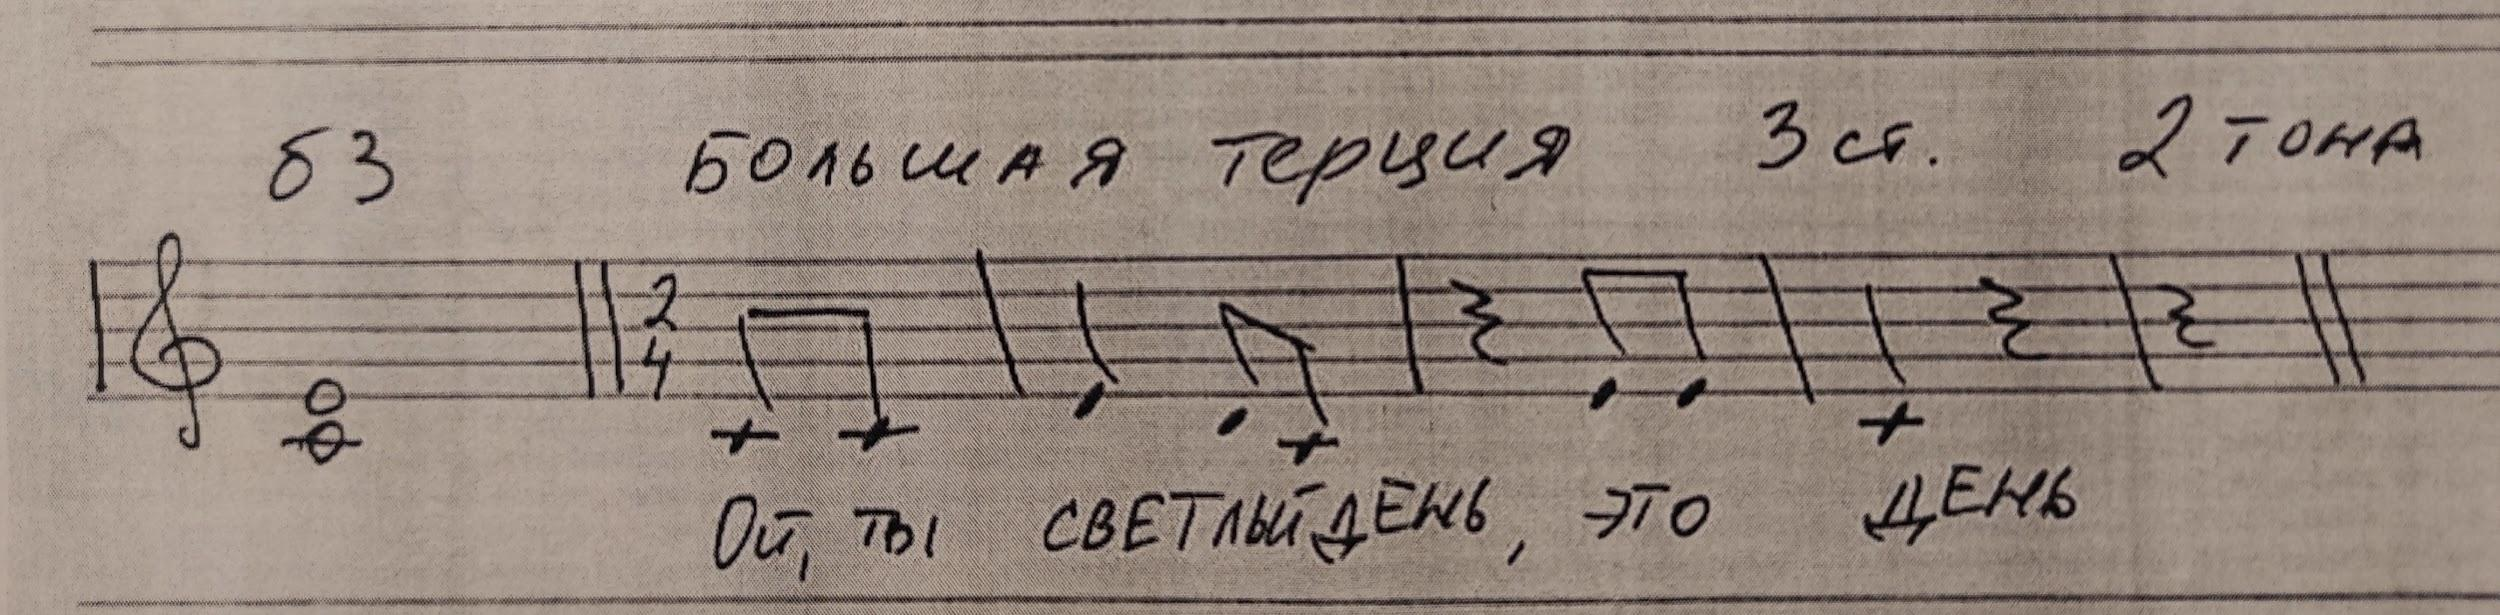 б3 Большая терция 3 ст. 2 тона
2
4
Ой, ты светлый день, это день